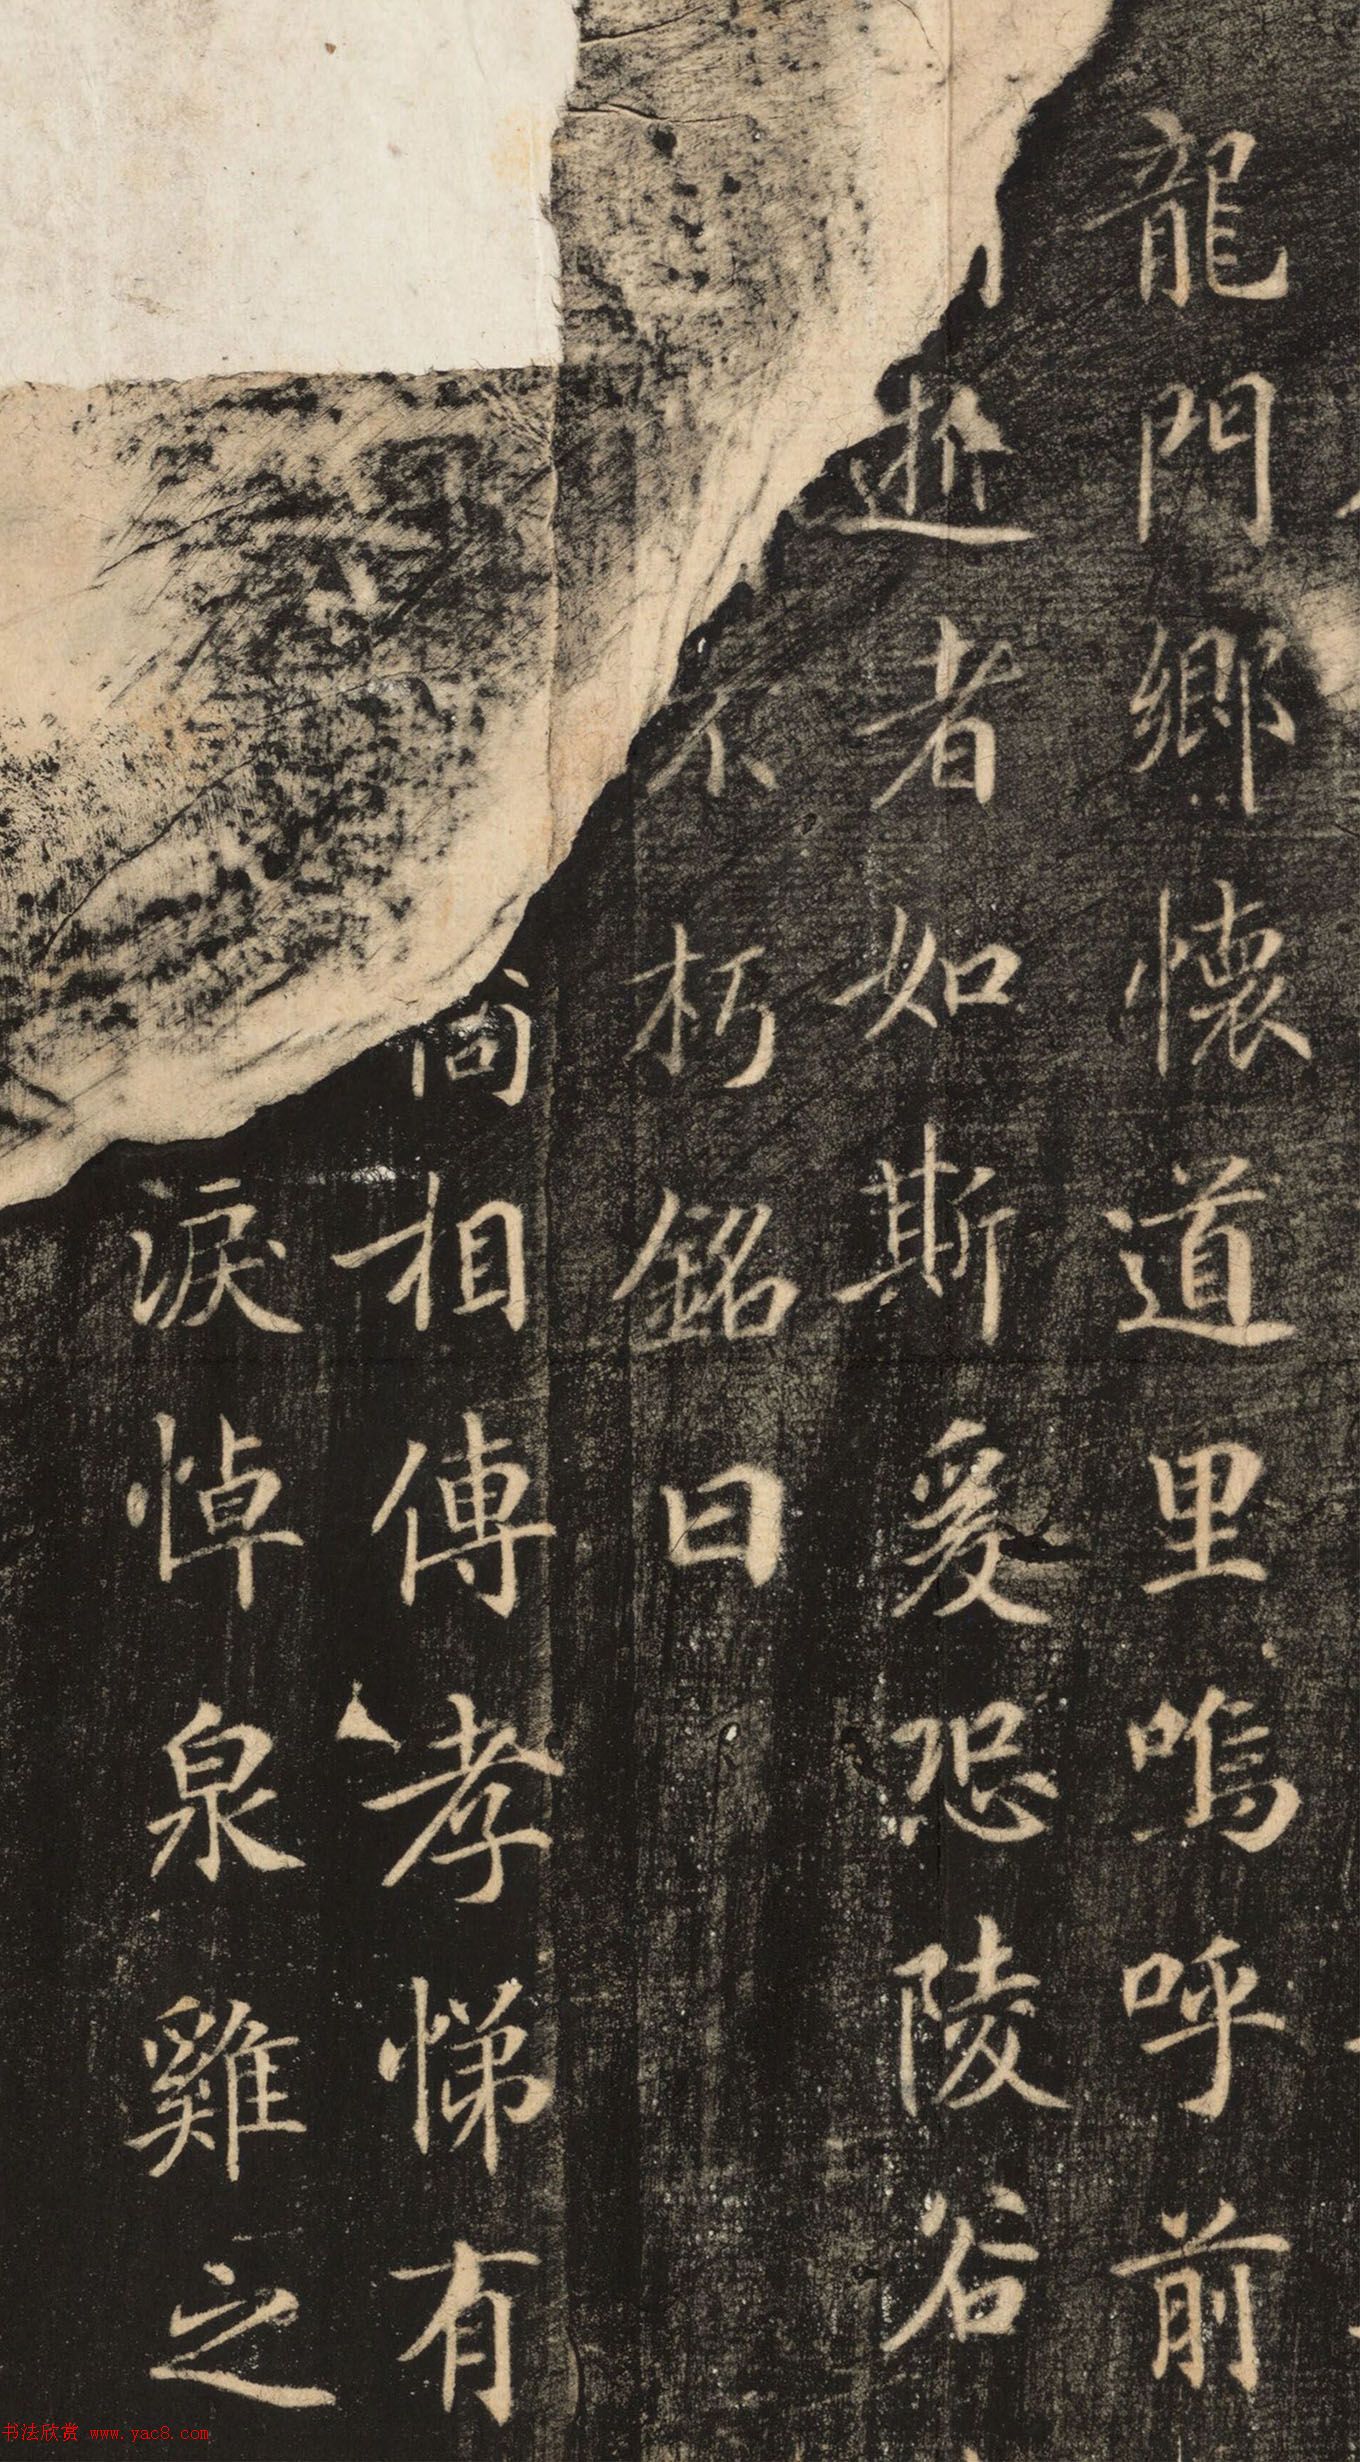 龍門鄉懷道里嗚呼前
逝者如斯爰恐陵谷
不朽銘曰
尚相傳孝悌有
淚悼泉雞之
书法欣赏 www.yac8.com